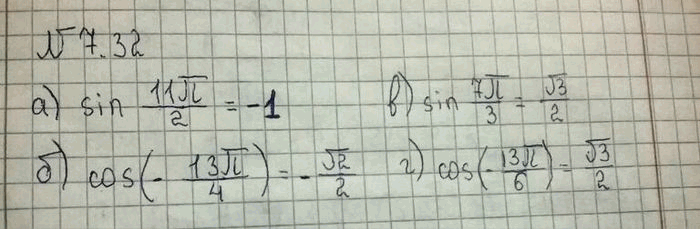 № 7.32
а) sin 11π/2 = -1 в) sin 7π/3 = √3/2
б) cos(- 13π/4) = - √2/2 г) cos(- 13π/6) = √3/2